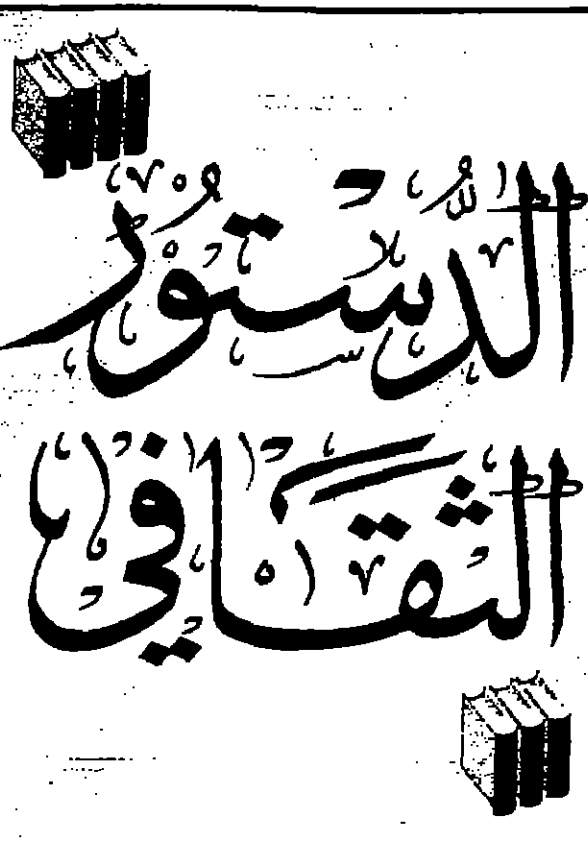 الدستور
الثقافي